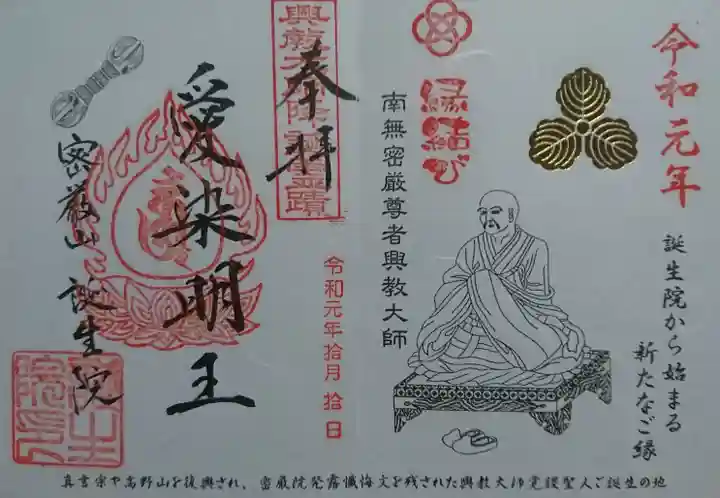 令和元年
誕生院から始まる
新たなご縁
縁結び
南無密厳尊者興教大師
奉拝
令和元年拾月拾日
愛染明王
密厳山 誕生院
真言宗や高野山を復興され、密厳院発露懺悔文を残された興教大師覚鑁聖人ご誕生の地